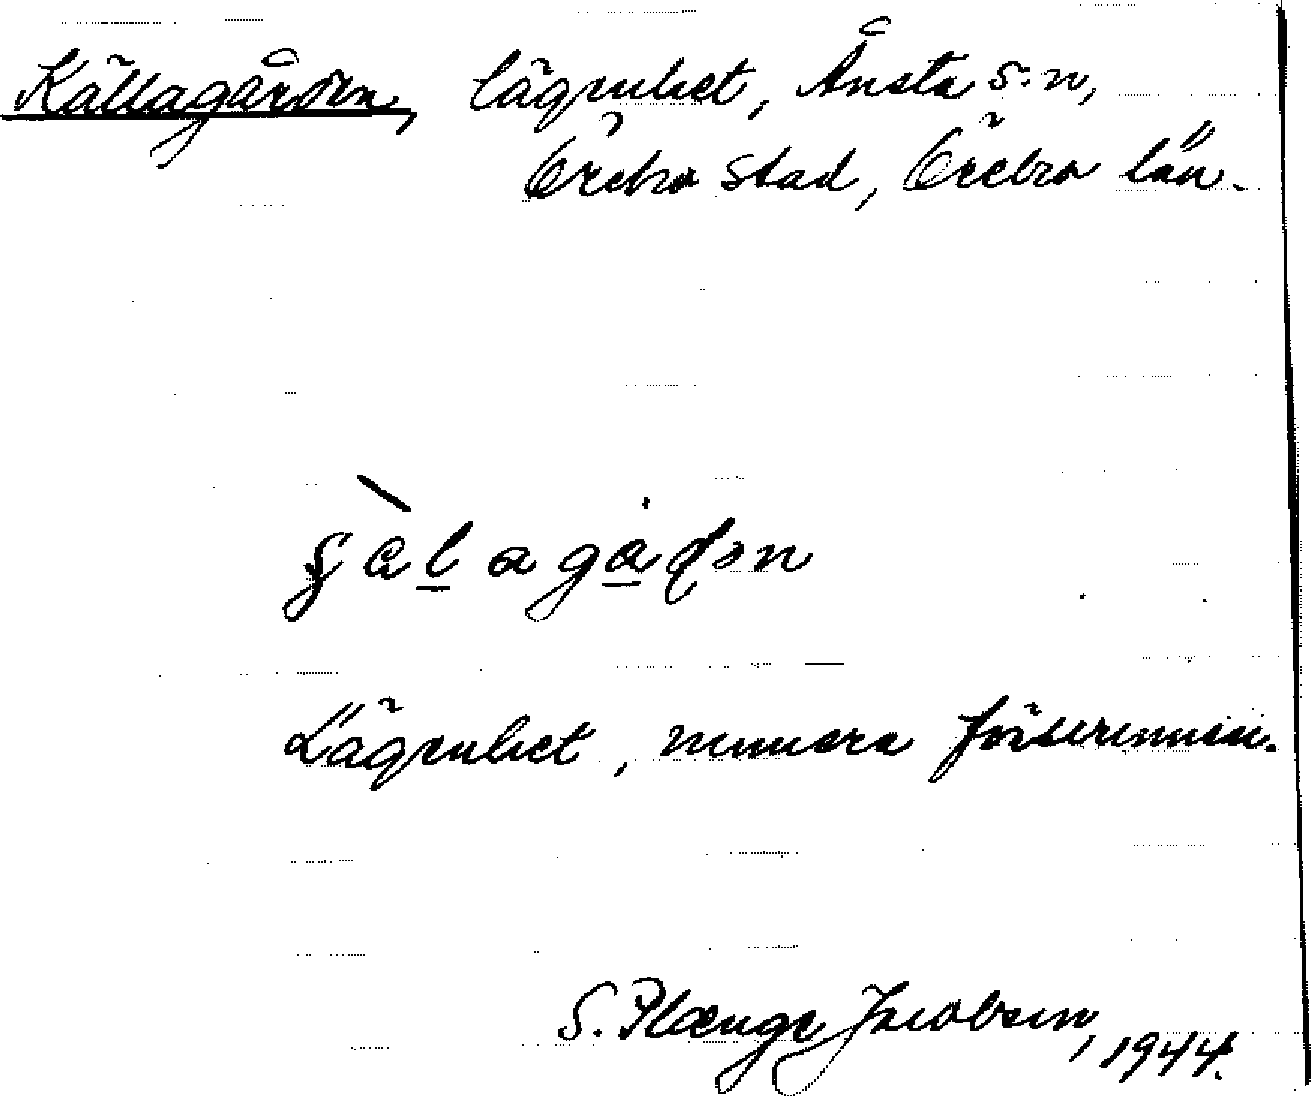 Källagården, lägenhet, Ånsta s:n,
Örebro stad, Örebro län.
Lägenhet, numera försvunnen.
S. Plænge Jacobsen, 1944.